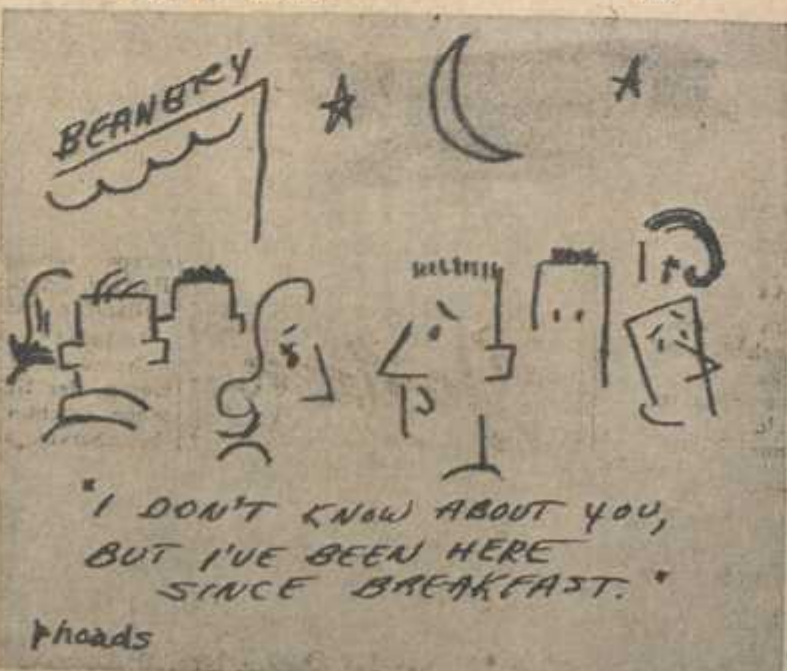 BEANERY
"I DON'T KNOW ABOUT YOU,
BUT I'VE BEEN HERE
SINCE BREAKFAST."
Rhoads